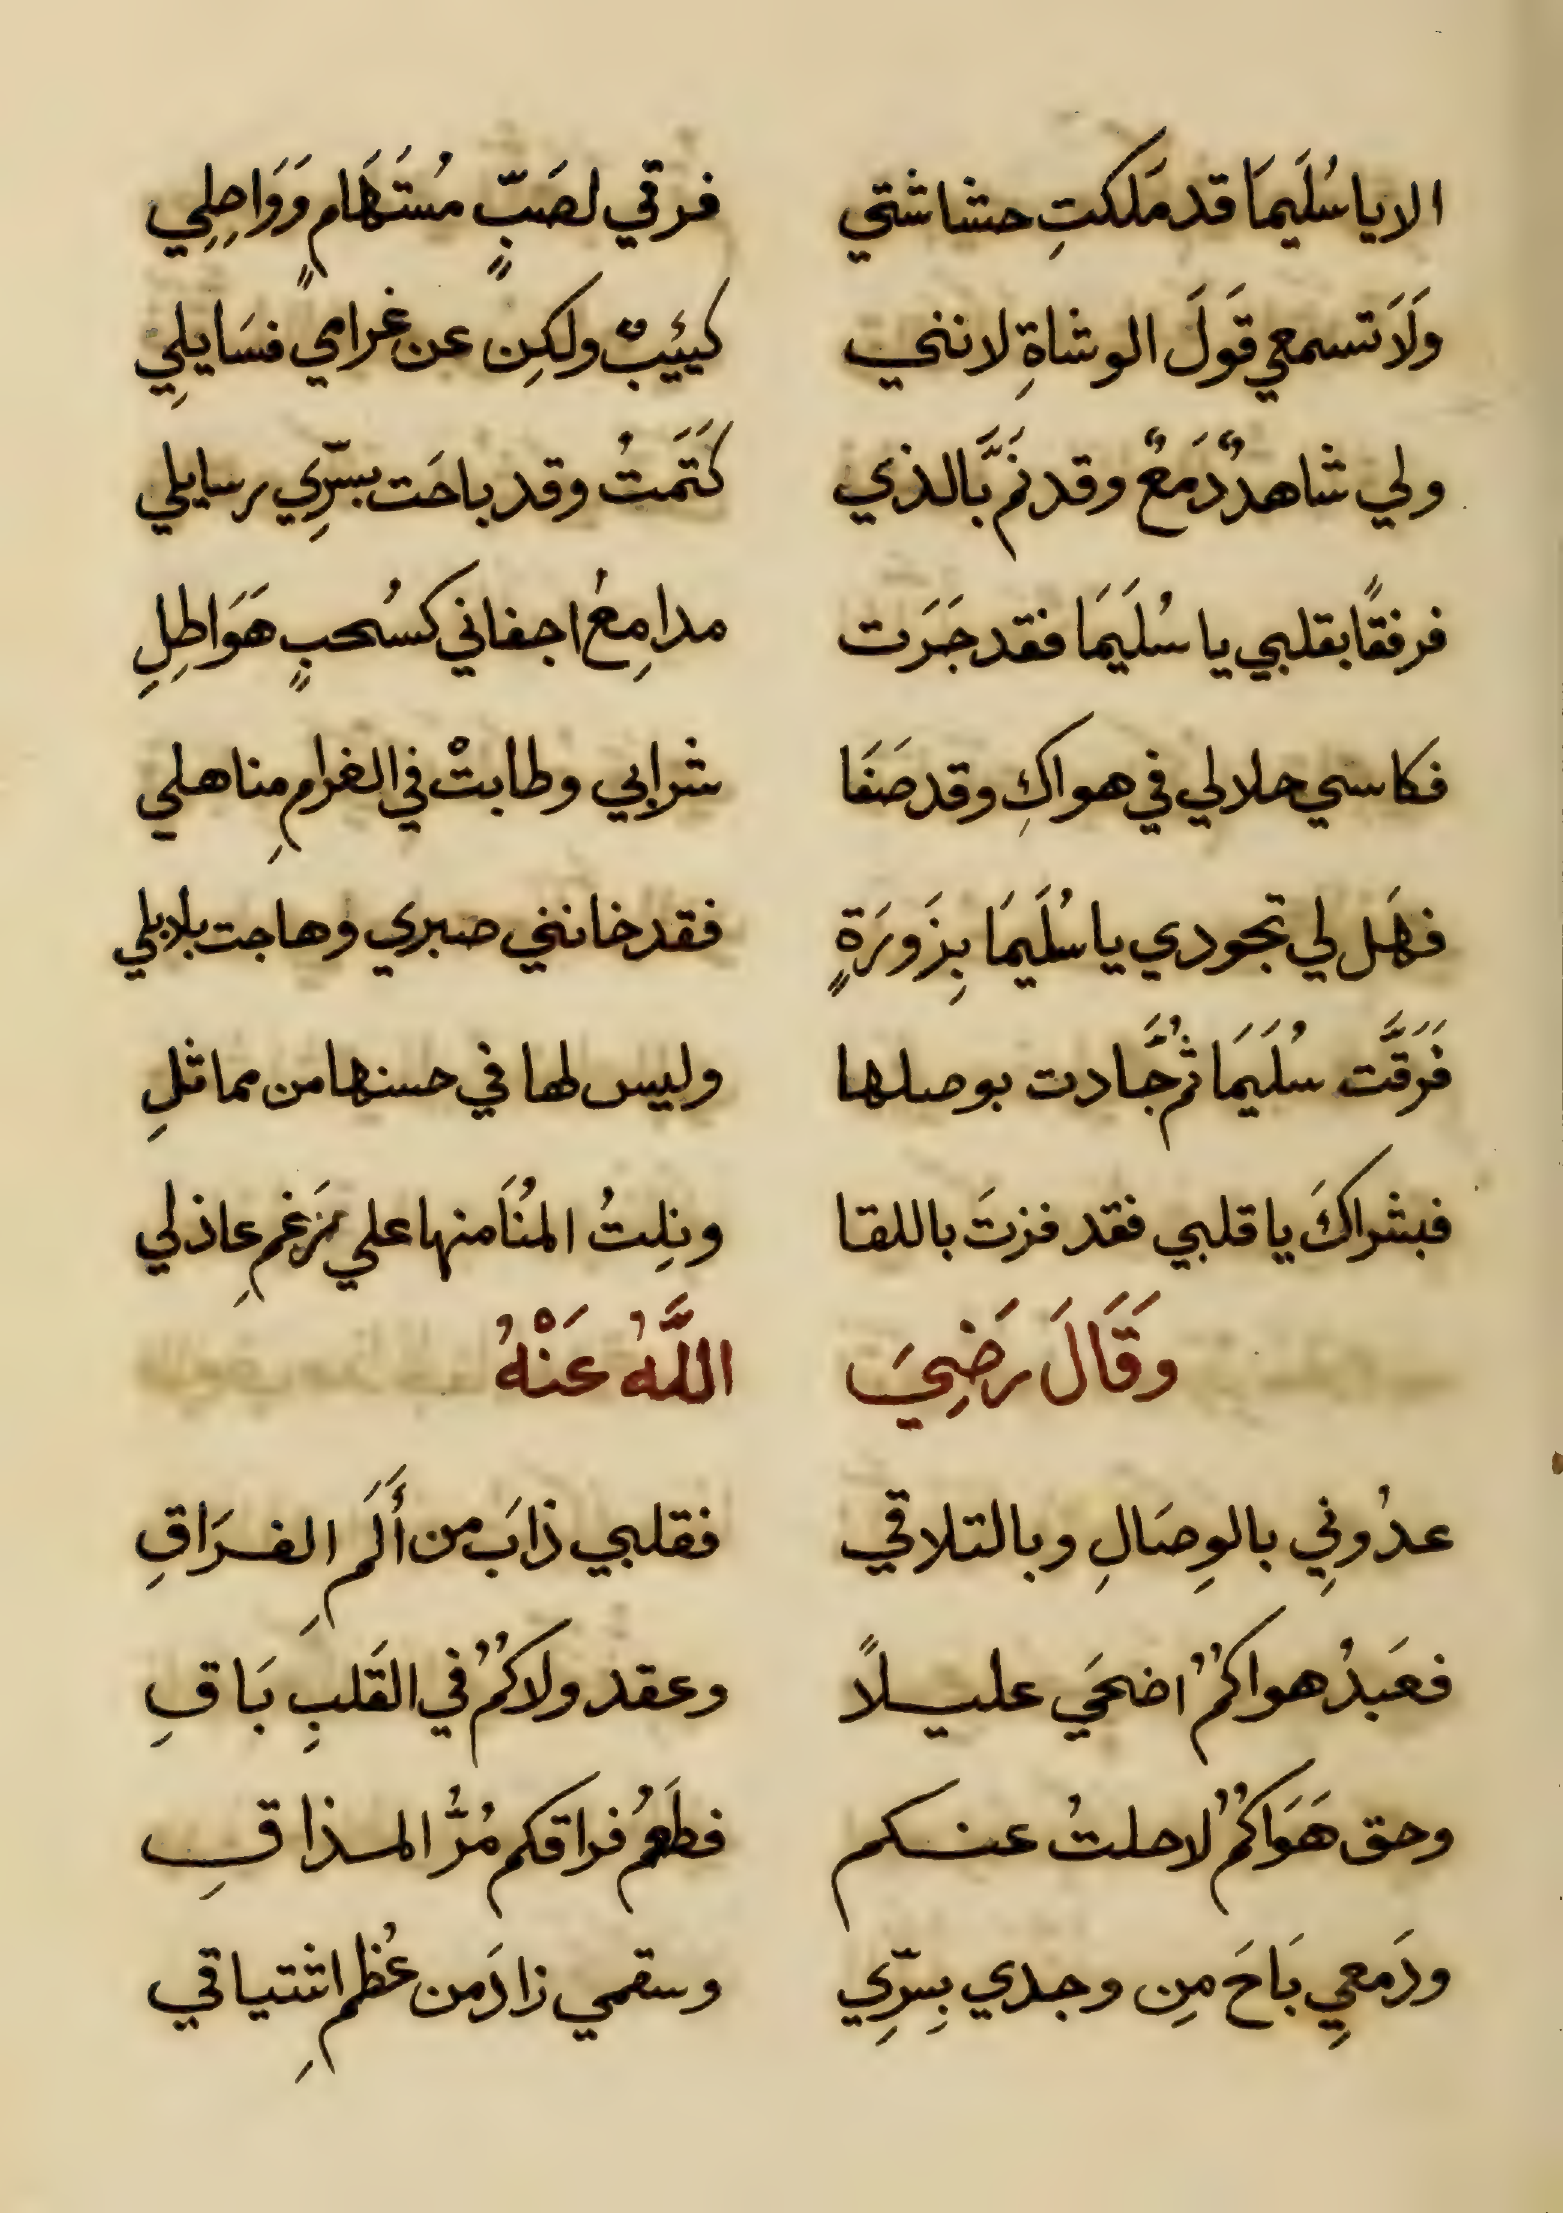 الا يا سُلَيمَا قد مَلكتِ حشاشتي فرقي لصَبٍّ مُستَهَامٍ وَوَاصِلِي
ولَا تسمعي قَولَ الوشاةِ لانني كيئيبٌ ولكِن عن غرامي فسَايلِي
ولي شاهدٌ دَمعٌ وقد نَمَّ بالذي كَتَمتُ وقد باحَت بسِرِّي رسايلي
فرفقًا بقلبي يا سُلَيمَا فقد جَرَت مدامِعُ اجفاني كسُحبٍ هَوَاطِلِ
فكاسي حلالي في هواكِ وقد صَفَا شرابي وطابتْ في الغرامِ مناهلي
فهَل لي تجودي يا سُلَيمَا بِزَورَةٍ فقد خانني صبري وهاجت بلابلي
فَرَقَّت سُلَيمَا ثُمَّ جَادت بوصلها وليس لها في حسنها من مماثلِ
فبشراكَ يا قلبي فقد فزتَ باللقا ونِلتُ المُنَا منها علي رَغمِ عاذلي
وَقَالَ رَضِيَ اللَّهُ عَنْهُ
عدُونِي بالوِصَالِ وبالتلاقي فقلبي ذابَ من أَلَمِ الفرَاقِ
فعَبدُ هواكُمُ اضحَي عليلًا وعقد ولاكُمُ في القَلبِ بَاقِ
وحق هَوَاكُمُ لا حلتُ عنكم فطَعمُ فراقكم مُرُّ المذاقِ
ودَمعِي بَاحَ مِن وجدي بِسِرِّي وسقمي زادَ من عُظمِ اشتياقي